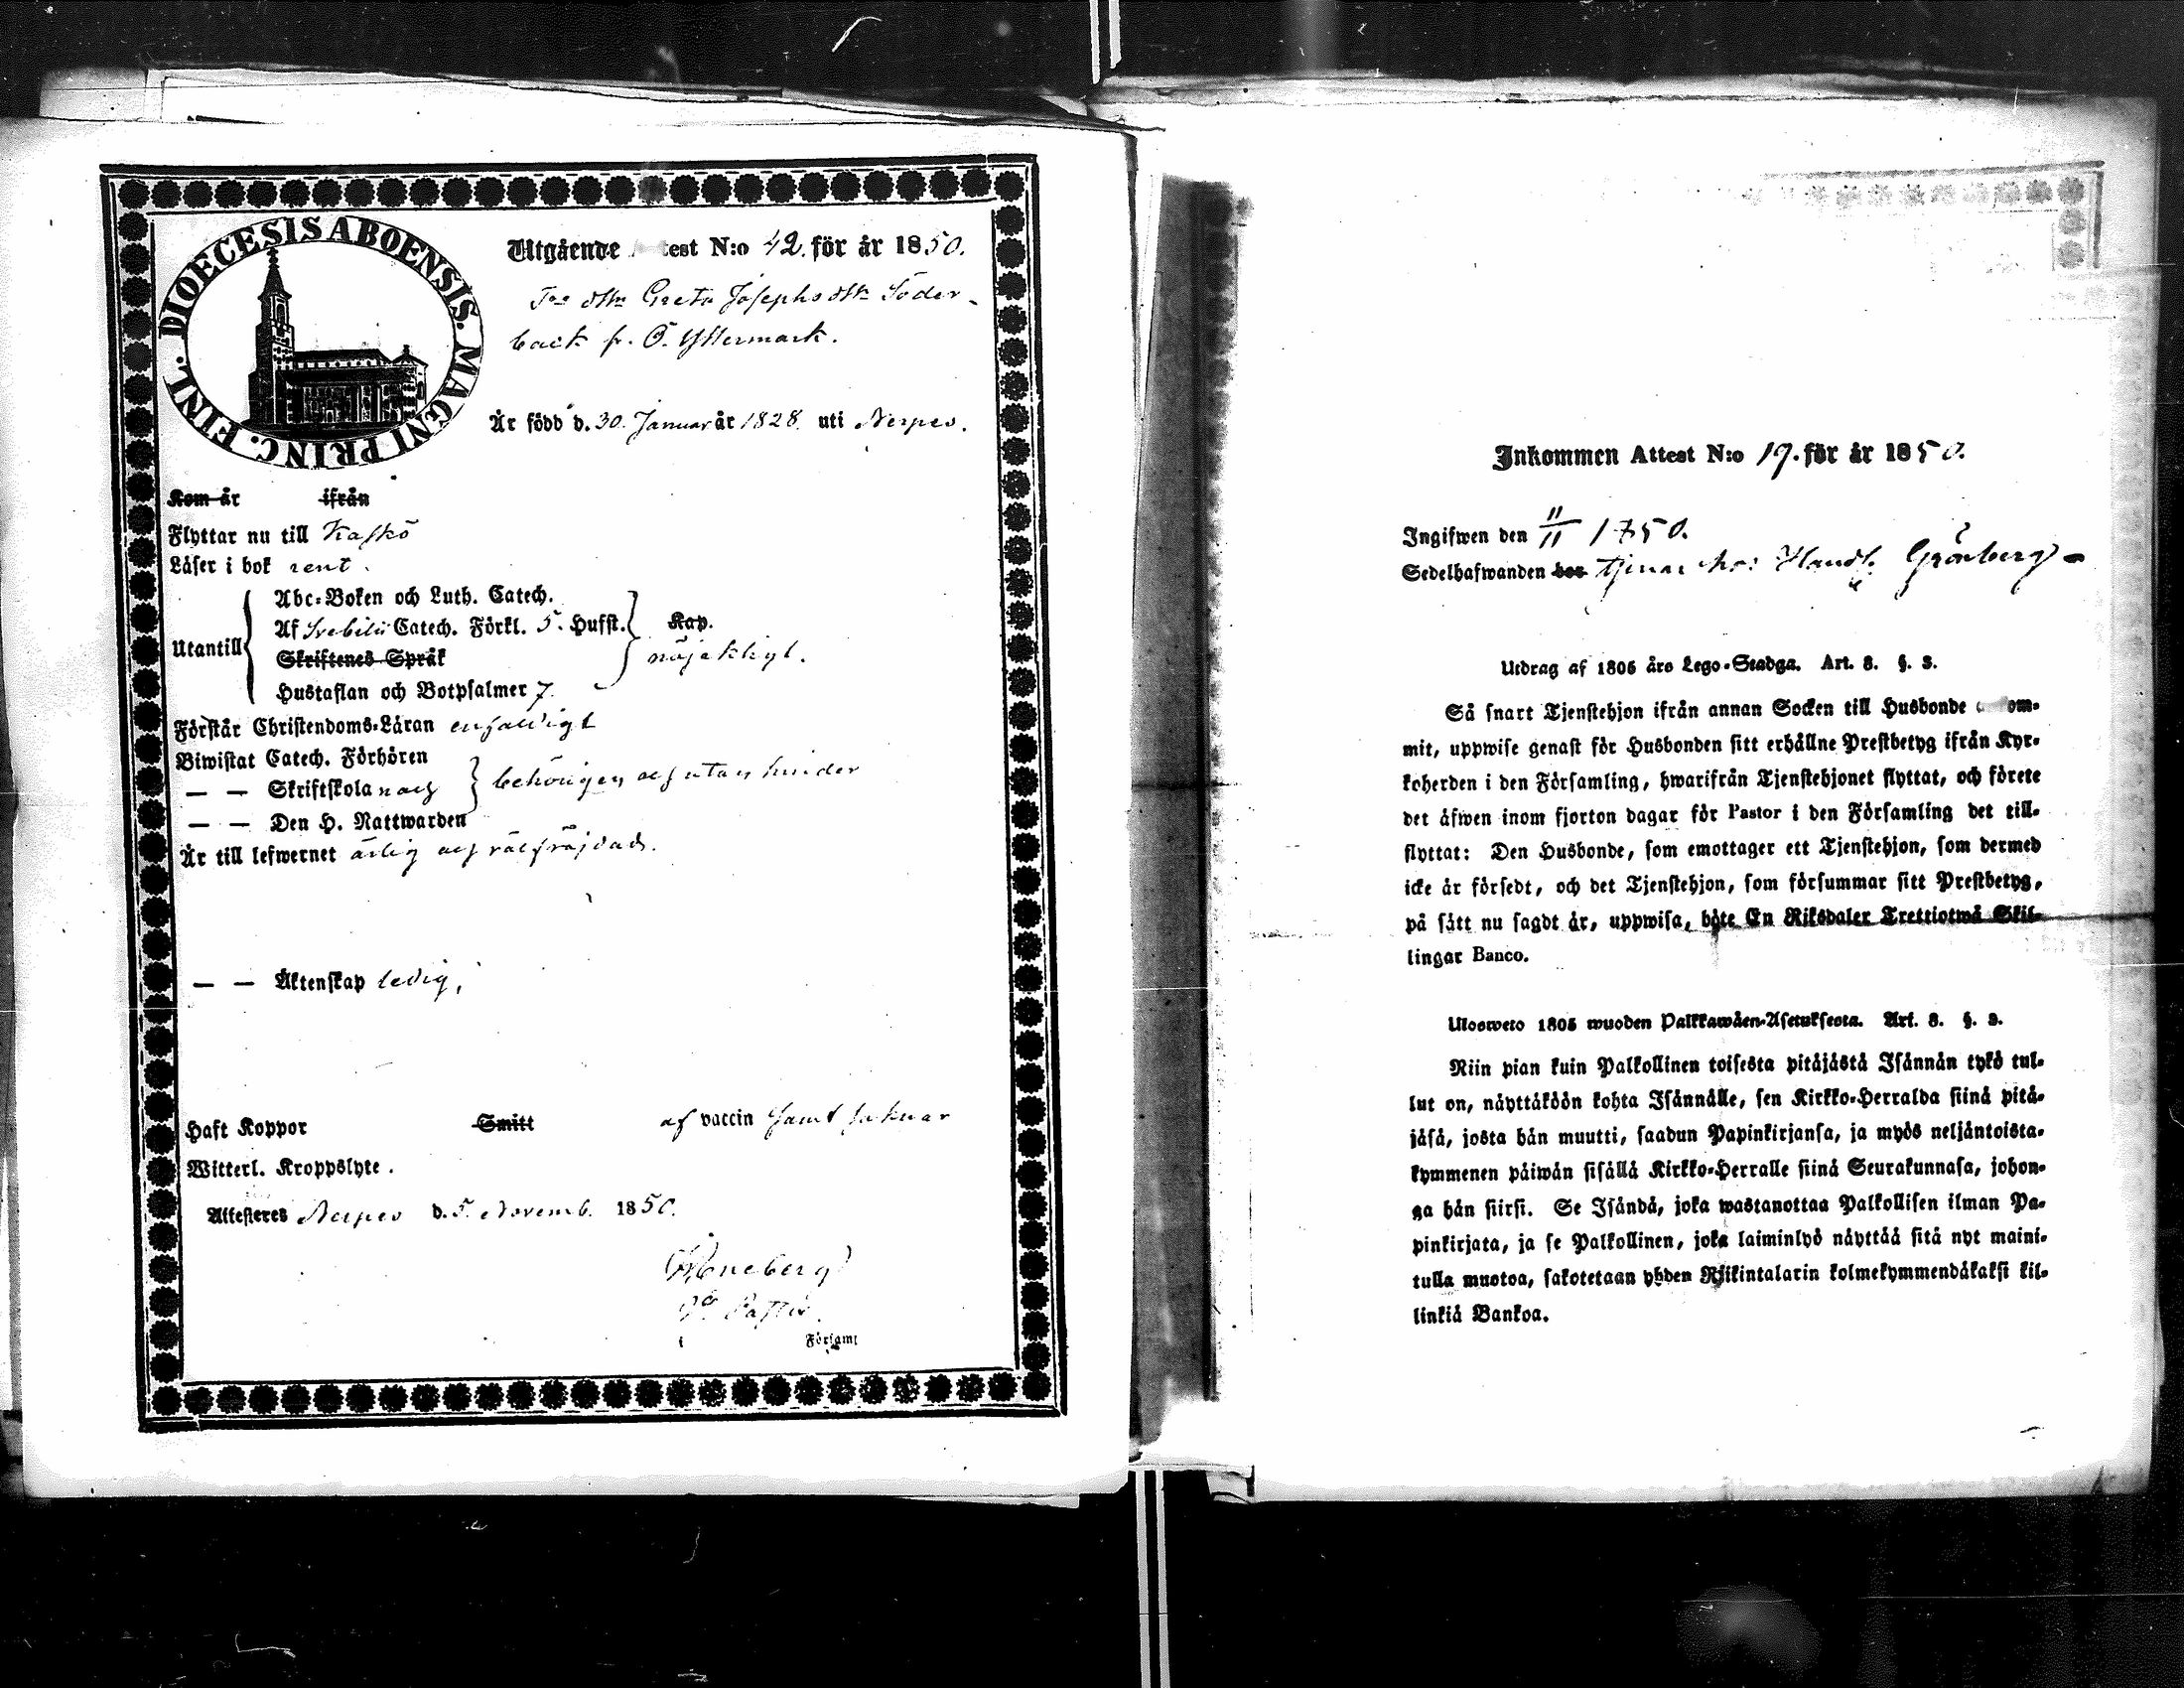 DIOECESIS ABOENSIS. MAGNI PRINC. FINL.
Utgående test N:o 42. för år 1850.
Greta Josephsdtr Söder-
back fr. Ö. Yttermark.
Är född d. 30. Januar år 1828. uti Nerpes.
Kom år ifrån
Flyttar nu till Kaskö
Läser i bok rent.
Utantill
Abc-Boken och Luth. Catech.
Af Svebilii Catech. Förkl. 5. Hufst. Kap.
Skriftenes Språk nöjaktligt.
Hustaflan och Botpsalmer 7.
Förstår Christendoms-Läran enfaldigt
Biwistat Catech. Förhören
— — Skriftskola och behörigen och utan hinder
— — Den H. Nattwarden
Är till lefwernet ärlig och välfräjdad.
— — Äktenskap ledig,
Haft Koppor Smitt af vaccin samt saknar
Witterl. Kroppslyte.
Attesteras Nerpes d. 5. Novemb. 1850.
Församl
Inkommen Attest N:o 19. för år 1850.
Ingifwen den 11/11 1850.
Sedelhafwanden bor tjenar hos Handl. Grönberg
Utdrag af 1805 års Lego-Stadga. Art. 8. §. 3.
Så snart Tjenstehjon ifrån annan Socken till Husbonde om-
mit, uppwise genast för Husbonden sitt erhållne Prestbetyg ifrån Kyr-
koherden i den Församling, hwarifrån Tjenstehjonet flyttat, och förete
det äfwen inom fjorton dagar för Pastor i den Församling det till-
flyttat: Den Husbonde, som emottager ett Tjenstehjon, som dermed
icke är försedt, och det Tjenstehjon, som försummar sitt Prestbetyg,
på sätt nu sagdt är, uppwisa, böte En Riksdaler Trettiotwå Skil-
lingar Banco.
Ulosweto 1805 wuoden Palkkawäen-Asetuksesta. Art. 8. §. 3.
Niin pian kuin Palkollinen toisesta pitäjästä Isännän tykö tul-
lut on, näyttäköön kohta Isännälle, sen Kirkko-Herralda siinä pitä-
jäsä, josta hän muutti, saadun Papinkirjansa, ja myös neljäntoista-
kymmenen päiwän sisällä Kirkko-Herralle siinä Seurakunnasa, johon-
ga hän siirsi. Se Isändä, joka wastanottaa Palkollisen ilman Pa-
pinkirjata, ja se Palkollinen, joka laiminlyö näyttää sitä nyt maini-
tulla muotoa, sakotetaan yhden Riikintalarin kolmekymmendäkaksi kil-
linkiä Bankoa.